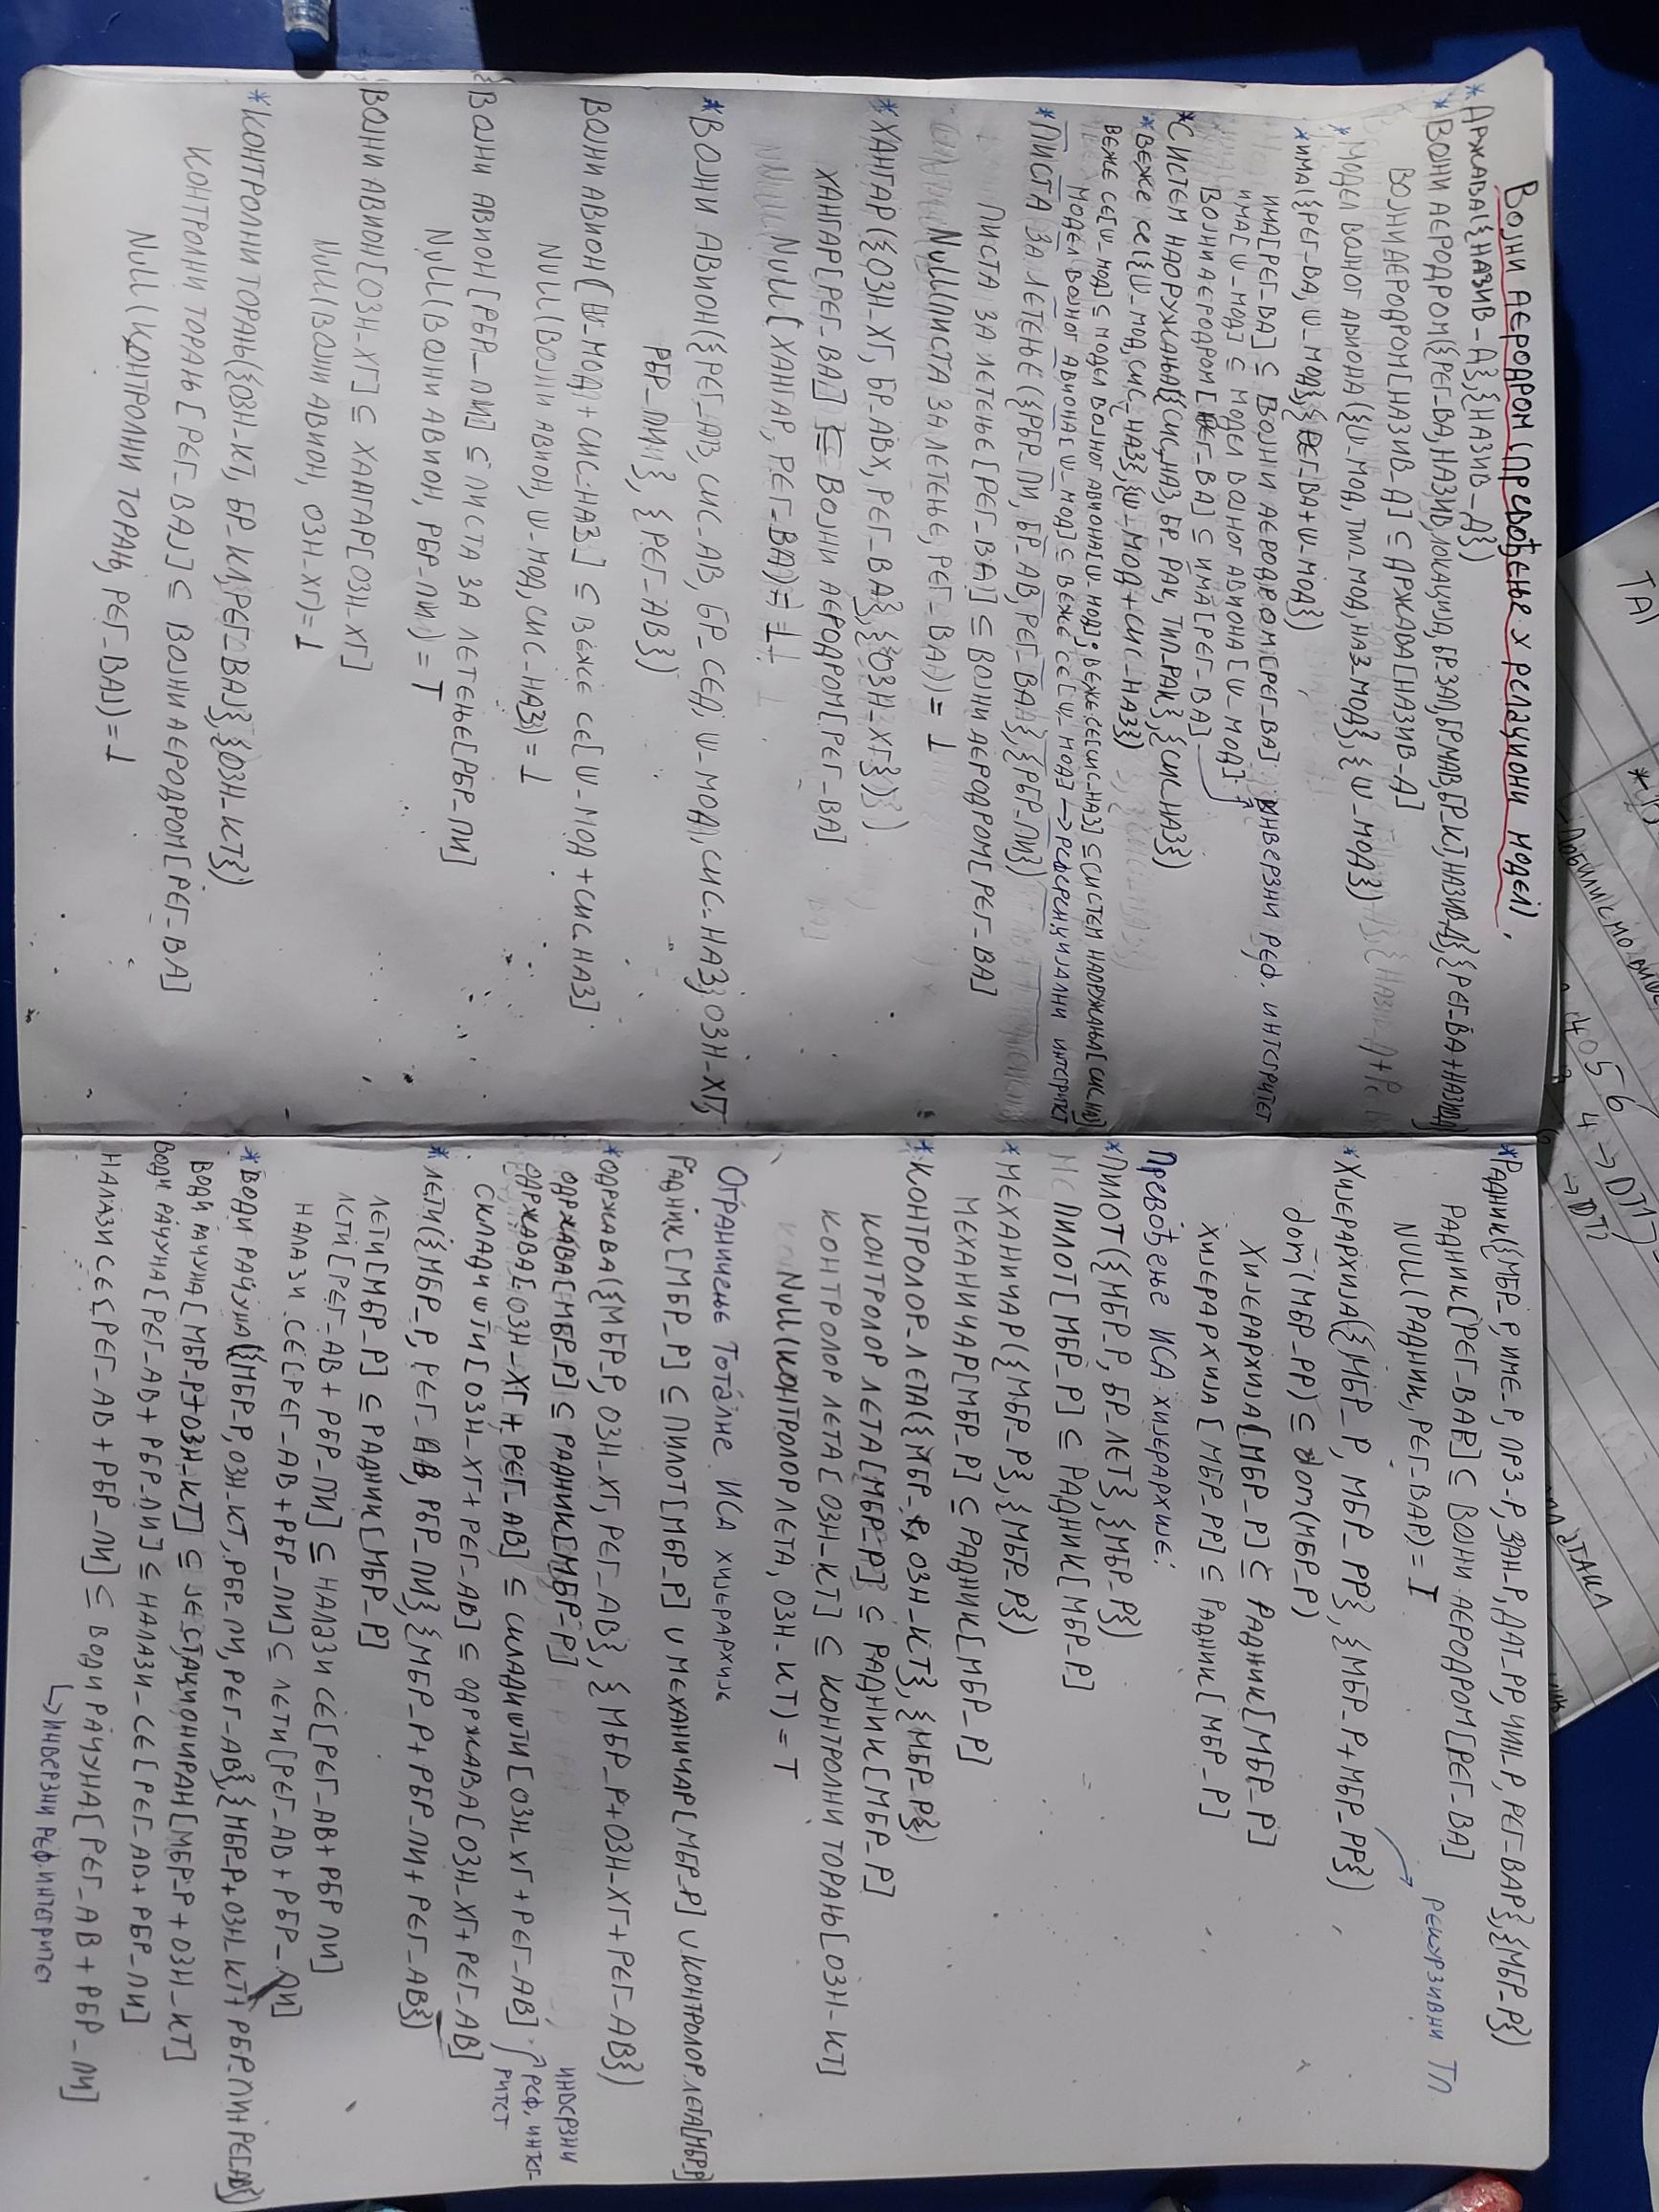 Војни аєродром (превођење у релациони модел)
*Држава({НАЗИВ_Д},{НАЗИВ_Д})
*Војни аєродром({РЕГ_ВА, НАЗИВ, локација, БР.ЗАП, БР.МАВ, БР_КТ, НАЗИВ_Д},{РЕГ_ВА+НАЗИВ_Д})
Војни аєродром[НАЗИВ_Д] ⊆ Држава[НАЗИВ_Д]
*Модел војног авиона({Ш_МОД, ТИП_МОД, НАЗ_МОД},{Ш_МОД})
*има({РЕГ_ВА, Ш_МОД},{РЕГ_ВА+Ш_МОД})
има[РЕГ_ВА] ⊆ Војни аєродром[РЕГ_ВА] инверзни реф. интегритет
има[Ш_МОД] ⊆ Модел војног авиона[Ш_МОД]
Војни аєродром[РЕГ_ВА] ⊆ има[РЕГ_ВА]
*Систем наоружања({СИС_НАЗ, БР_РАК, ТИП_РАК},{СИС_НАЗ})
*Веже се({Ш_МОД, СИС_НАЗ},{Ш_МОД+СИС_НАЗ})
Веже се[Ш_МОД] ⊆ Модел војног авиона[Ш_МОД]; Веже се[СИС_НАЗ] ⊆ Систем наоржања[СИС_НАЗ]
Модел војног авиона[Ш_МОД] ⊆ Веже се[Ш_МОД] → референцијални интегритет
*Листа за летење({РБР_ЛИ, БР_АВ, РЕГ_ВАЛ},{РБР_ЛИ})
Листа за летење[РЕГ_ВА] ⊆ Војни аєродром[РЕГ_ВА]
Null(Листа за летење, РЕГ_ВАЛ) = ⊥
*Хангар({ОЗН_ХГ, БР_АВХ, РЕГ_ВА},{ОЗН_ХГ})
Хангар[РЕГ_ВА] ⊆ Војни аєродром[РЕГ_ВА]
Null(Хангар, РЕГ_ВА) = ⊥
*Војни авион({РЕГ_АВ, СИС_АВ, БР_СЕД, Ш_МОД, СИС_НАЗ, ОЗН_ХГ,
РБР_ЛИ},{РЕГ_АВ})
Војни авион[Ш_МОД+СИС_НАЗ] ⊆ Веже се[Ш_МОД+СИС_НАЗ]
Null(Војни авион, Ш_МОД, СИС_НАЗ) = ⊥
Војни авион[РБР_ЛИ] ⊆ Листа за летење[РБР_ЛИ]
Null(Војни авион, РБР_ЛИ) = T
Војни авион[ОЗН_ХГ] ⊆ Хангар[ОЗН_ХГ]
Null(Војни авион, ОЗН_ХГ) = ⊥
*Контролни торањ({ОЗН_КТ, БР_КЛ, РЕГ_ВАЈ},{ОЗН_КТ})
Контролни торањ[РЕГ_ВАЈ] ⊆ Војни аєродром[РЕГ_ВА]
Null(Контролни торањ, РЕГ_ВАЈ) = ⊥
*Радник({МБР_Р, ИМЕ_Р, ПРЗ_Р, ЗАН_Р, ДАТ_РР, ЧИН_Р, РЕГ_ВАР},{МБР_Р})
Радник[РЕГ_ВАР] ⊆ Војни аєродром[РЕГ_ВА]
NULL(Радник, РЕГ_ВАР) = ⊥
рекурзивни ТП
*Хијерархија({МБР_Р, МБР_РР},{МБР_Р+МБР_РР})
dom(МБР_РР) ⊆ dom(МБР_Р)
Хијерархија[МБР_Р] ⊆ Радник[МБР_Р]
Хијерархија[МБР_РР] ⊆ Радник[МБР_Р]
Превођење ИСА хијерархије:
*Пилот({МБР_Р, БР_ЛЕТ},{МБР_Р})
Пилот[МБР_Р] ⊆ Радник[МБР_Р]
*Механичар({МБР_Р},{МБР_Р})
Механичар[МБР_Р] ⊆ Радник[МБР_Р]
*Контролор_лета({МБР_Р, ОЗН_КТ},{МБР_Р})
Контролор лета[МБР_Р] ⊆ Радник[МБР_Р]
Контролор лета[ОЗН_КТ] ⊆ Контролни торањ[ОЗН_КТ]
Null(Контролор лета, ОЗН_КТ) = T
Ограничење Тоталне ИСА хијерархије
Радник[МБР_Р] ⊆ Пилот[МБР_Р] ∪ Механичар[МБР_Р] ∪ Контролор лета[МБР_Р]
*Одржава({МБР_Р, ОЗН_ХГ, РЕГ_АВ},{МБР_Р+ОЗН_ХГ+РЕГ_АВ})
Одржава[МБР_Р] ⊆ Радник[МБР_Р]
Одржава[ОЗН_ХГ+РЕГ_АВ] ⊆ Складишти[ОЗН_ХГ+РЕГ_АВ]
Складишти[ОЗН_ХГ+РЕГ_АВ] ⊆ Одржава[ОЗН_ХГ+РЕГ_АВ]
инверзни
реф. интег-
ритет
*Лети({МБР_Р, РЕГ_АВ, РБР_ЛИ},{МБР_Р+РБР_ЛИ+РЕГ_АВ})
Лети[МБР_Р] ⊆ Радник[МБР_Р]
Лети[РЕГ_АВ+РБР_ЛИ] ⊆ Налази се[РЕГ_АВ+РБР ЛИ]
Налази се[РЕГ_АВ+РБР_ЛИ] ⊆ Лети[РЕГ_АВ+РБР_ЛИ]
*Води рачуна({МБР_Р, ОЗН_КТ, РБР_ЛИ, РЕГ_АВ},{МБР_Р+ОЗН_КТ+РБР_ЛИ+РЕГ_АВ})
Води рачуна[МБР_Р+ОЗН_КТ] ⊆ Је_стациониран[МБР_Р+ОЗН_КТ]
Води рачуна[РЕГ_АВ+РБР_ЛИ] ⊆ Налази_се[РЕГ_АВ+РБР_ЛИ]
Налази се[РЕГ_АВ+РБР_ЛИ] ⊆ Води рачуна[РЕГ_АВ+РБР_ЛИ]
↳ инверзни реф. интегритет
ТА)
4056
4 → DT1
→ DT2